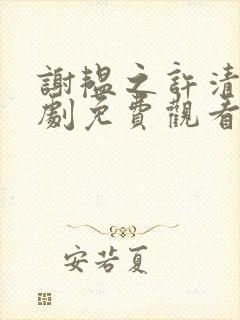 謝韞之許清
劇免費觀看
安若夏